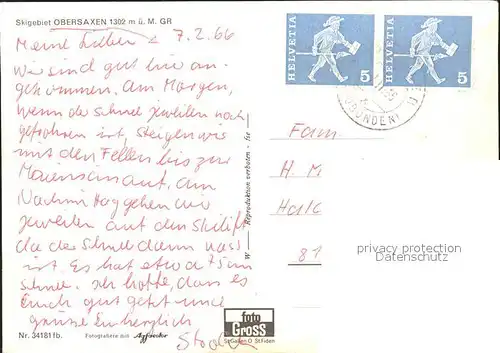 Skigebiet OBERSAXEN 1302 m ü. M. GR
7.2.66
Meine Lieben
Wir sind gut hier an-
gekommen. Am Morgen,
wenn der Schnee zuweilen noch
gefrohren ist, steigen wir
mit den Fellen bis zur
auf. Am
Nachmittag gehen wir
zuweilen auf den Skilift
da der Schnee dann nass
ist. Es hat etwa 75 cm
Schnee. Ich hoffe, dass es
Euch gut geht und
grüsse Euch herzlich
Nr. 34181 fb.
Fotografiere aus
W — Reproduktion verboten - fix —
foto
Gross
St Gallen O St Fiden
HELVETIA
5
HELVETIA
5
BÜNDEN)
Fam.
H. M
Halc
81
privacy protection
Datenschutz